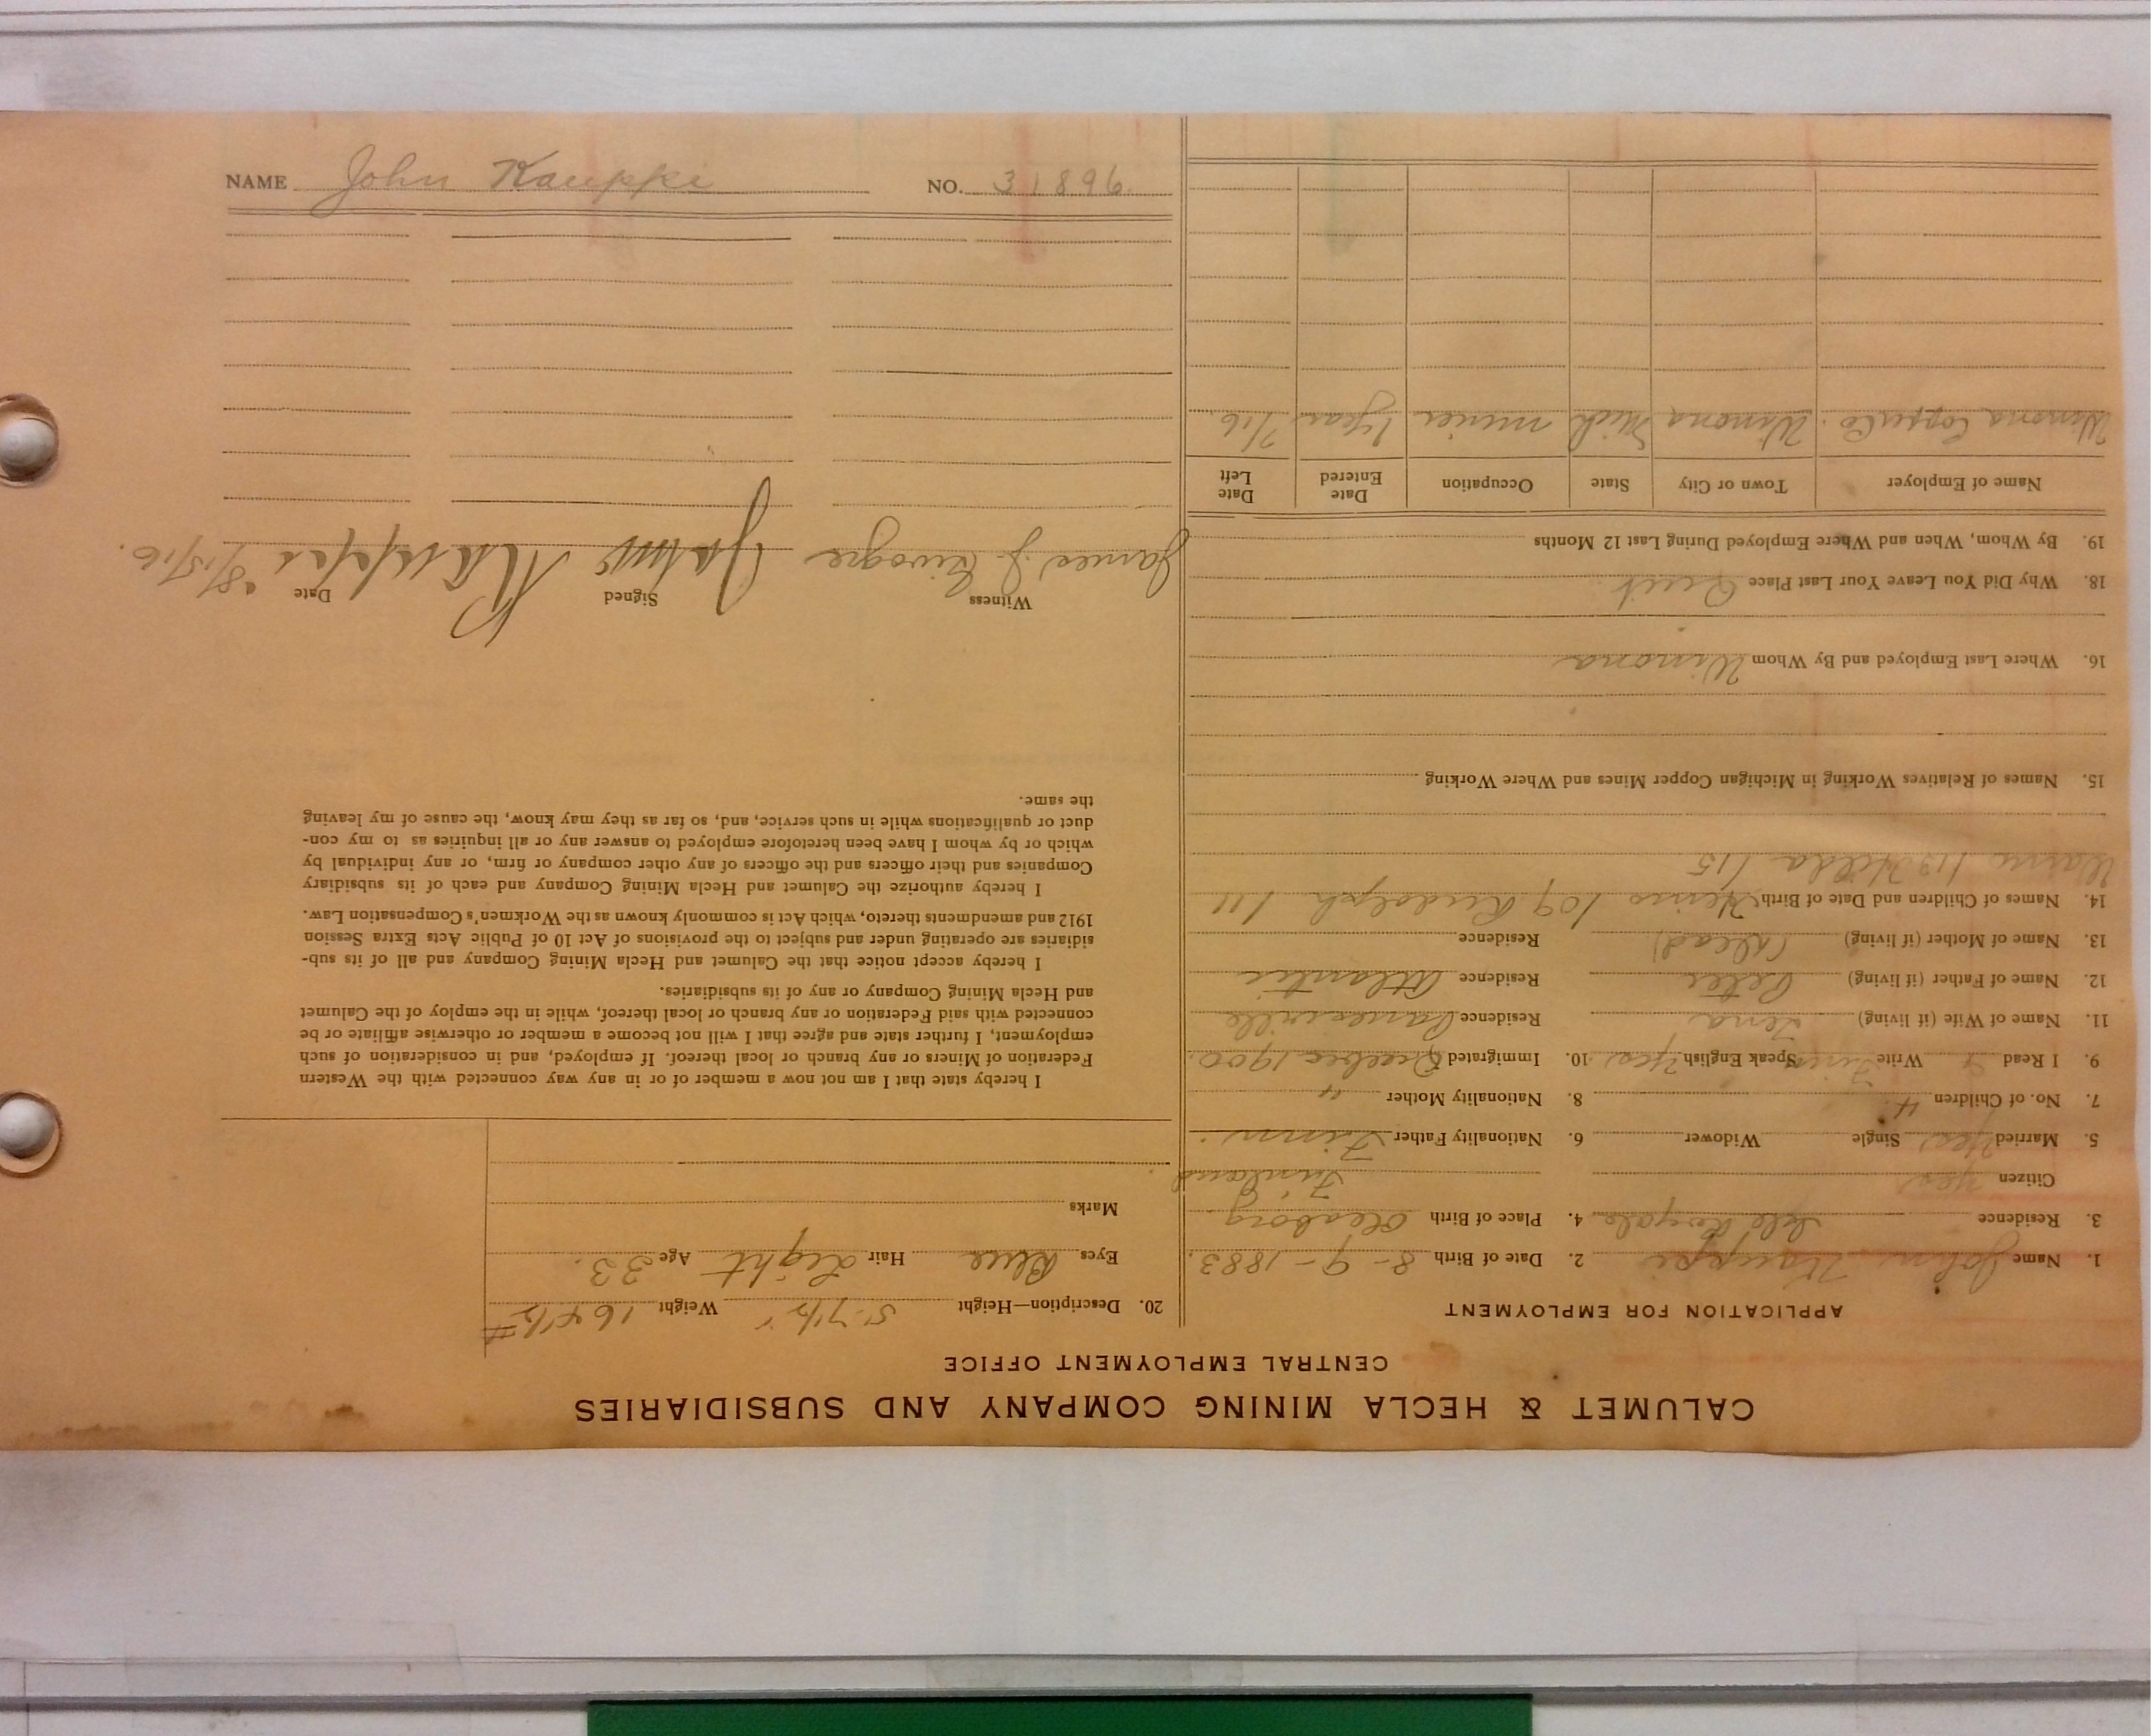 CALUMET & HECLA MINING COMPANY AND SUBSIDIARIES
CENTRAL EMPLOYMENT OFFICE
APPLICATION FOR EMPLOYMENT
1. Name John Kauppi 2. Date of Birth 8-9-1883.
3. Residence Isle Royale 4. Place of Birth Uleaborg
Citizen yes Finland
5. Married Yes Single Widower 6. Nationality Father Finn.
7. No. of Children 4. 8. Nationality Mother "
9. I Read & Write Finn Speak English Yes 10. Immigrated Quebec 1900.
11. Name of Wife (if living) Lena Residence Painesville
12. Name of Father (if living) Peter Residence Atlantic
13. Name of Mother (if living) (Dead) Residence
14. Names of Children and Date of Birth Heino /09 Rudolph /11
Waino /13 Hilda /15
15. Names of Relatives Working in Michigan Copper Mines and Where Working
16. Where Last Employed and By Whom Winona
18. Why Did You Leave Your Last Place Quit.
19. By Whom, When and Where Employed During Last 12 Months
Name of Employer Town or City State Occupation Date Entered Date Left
Winona Copper Co. Winona Mich miner 1 year 7/16.
20. Description—Height 5'-7½" Weight 164½#
Eyes Blue Hair Light Age 33.
Marks
I hereby state that I am not now a member of or in any way connected with the Western
Federation of Miners or any branch or local thereof. If employed, and in consideration of such
employment, I further state and agree that I will not become a member or otherwise affiliate or be
connected with said Federation or any branch or local thereof, while in the employ of the Calumet
and Hecla Mining Company or any of its subsidiaries.
I hereby accept notice that the Calumet and Hecla Mining Company and all of its sub-
sidiaries are operating under and subject to the provisions of Act 10 of Public Acts Extra Session
1912 and amendments thereto, which Act is commonly known as the Workmen's Compensation Law.
I hereby authorize the Calumet and Hecla Mining Company and each of its subsidiary
Companies and their officers and the officers of any other company or firm, or any individual by
which or by whom I have been heretofore employed to answer any or all inquiries as to my con-
duct or qualifications while in such service, and, so far as they may know, the cause of my leaving
the same.
Witness Signed Date
James J. John Kauppi 8/15/16.
NAME John Kauppi NO. 31896.